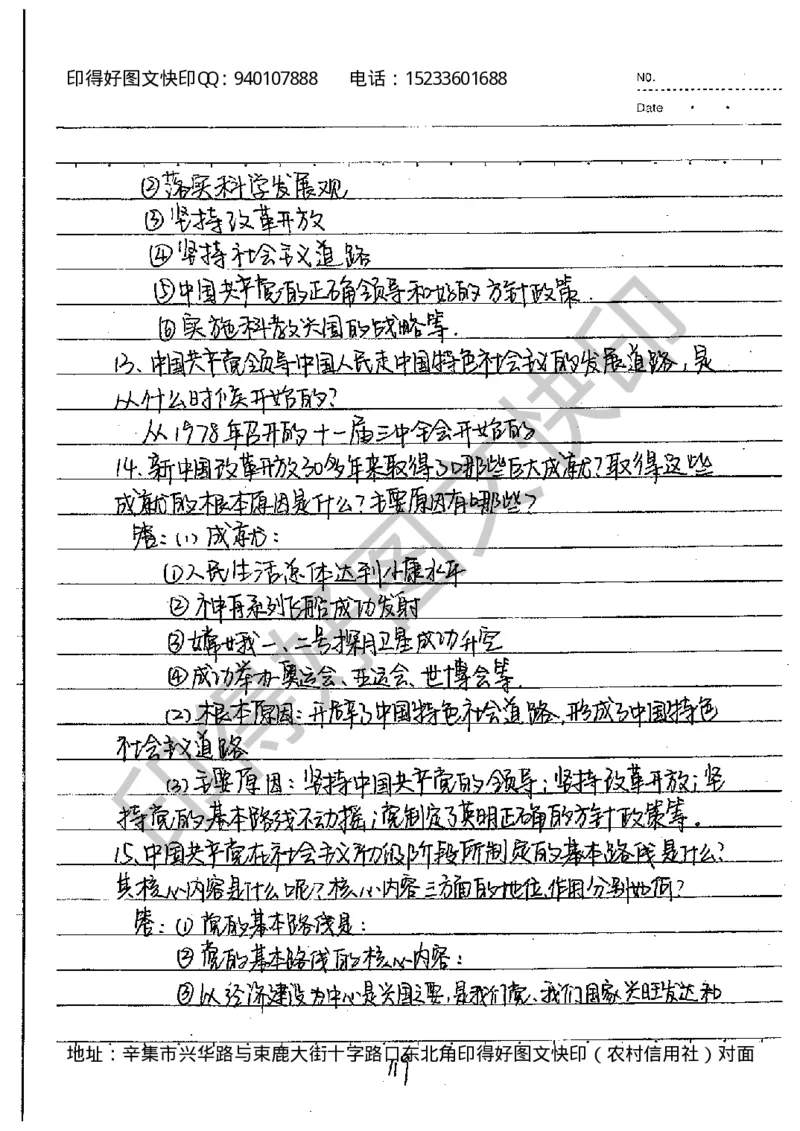 印得好图文快印QQ：940107888 电话：15233601688
NO.
Date
②落实科学发展观
③坚持改革开放
④坚持社会主义道路
⑤中国共产党的正确领导和好的方针政策.
⑥实施科教兴国的战略等.
13、中国共产党领导中国人民走中国特色社会主义的发展道路,是
从什么时候开始的?
从1978年召开的十一届三中全会开始的
14、新中国改革开放30多年来取得了哪些巨大成就?取得这些
成就的根本原因是什么?主要原因有哪些?
答:(1)成就:
①人民生活总体达到小康水平
②神舟系列飞船成功发射
③嫦娥一、二号探月卫星成功升空
④成功举办奥运会、亚运会、世博会等.
(2)根本原因:开辟了中国特色社会道路,形成了中国特色
社会主义道路
(3)主要原因:坚持中国共产党的领导;坚持改革开放;坚
持党的基本路线不动摇;党制定了英明正确的方针政策等。
15、中国共产党在社会主义初级阶段所制定的基本路线是什么?
其核心内容是什么呢?核心内容三方面的地位作用分别如何?
答:①党的基本路线是:
②党的基本路线的核心内容:
③以经济建设为中心是兴国之要,是我们党、我们国家兴旺发达和
地址：辛集市兴华路与束鹿大街十字路口东北角印得好图文快印（农村信用社）对面
119
印得好图文快印